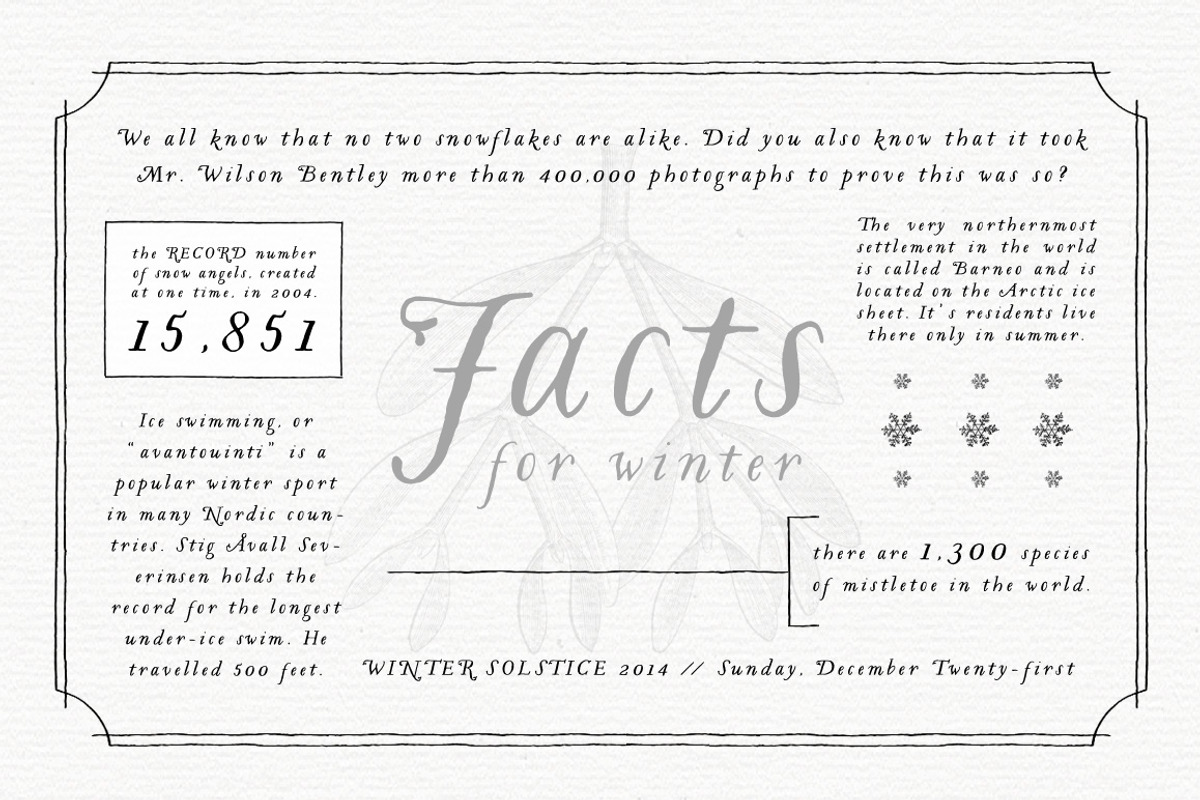 We all know that no two snowflakes are alike. Did you also know that it took
Mr. Wilson Bentley more than 400,000 photographs to prove this was so?
the RECORD number
of snow angels, created
at one time, in 2004.
15,851
Ice swimming, or
“avantouinti” is a
popular winter sport
in many Nordic coun-
tries. Stig Åvall Sev-
erinsen holds the
record for the longest
under-ice swim. He
travelled 500 feet.
Facts
for winter
The very northernmost
settlement in the world
is called Barneo and is
located on the Arctic ice
sheet. It's residents live
there only in summer.
there are 1,300 species
of mistletoe in the world.
WINTER SOLSTICE 2014 // Sunday, December Twenty-first